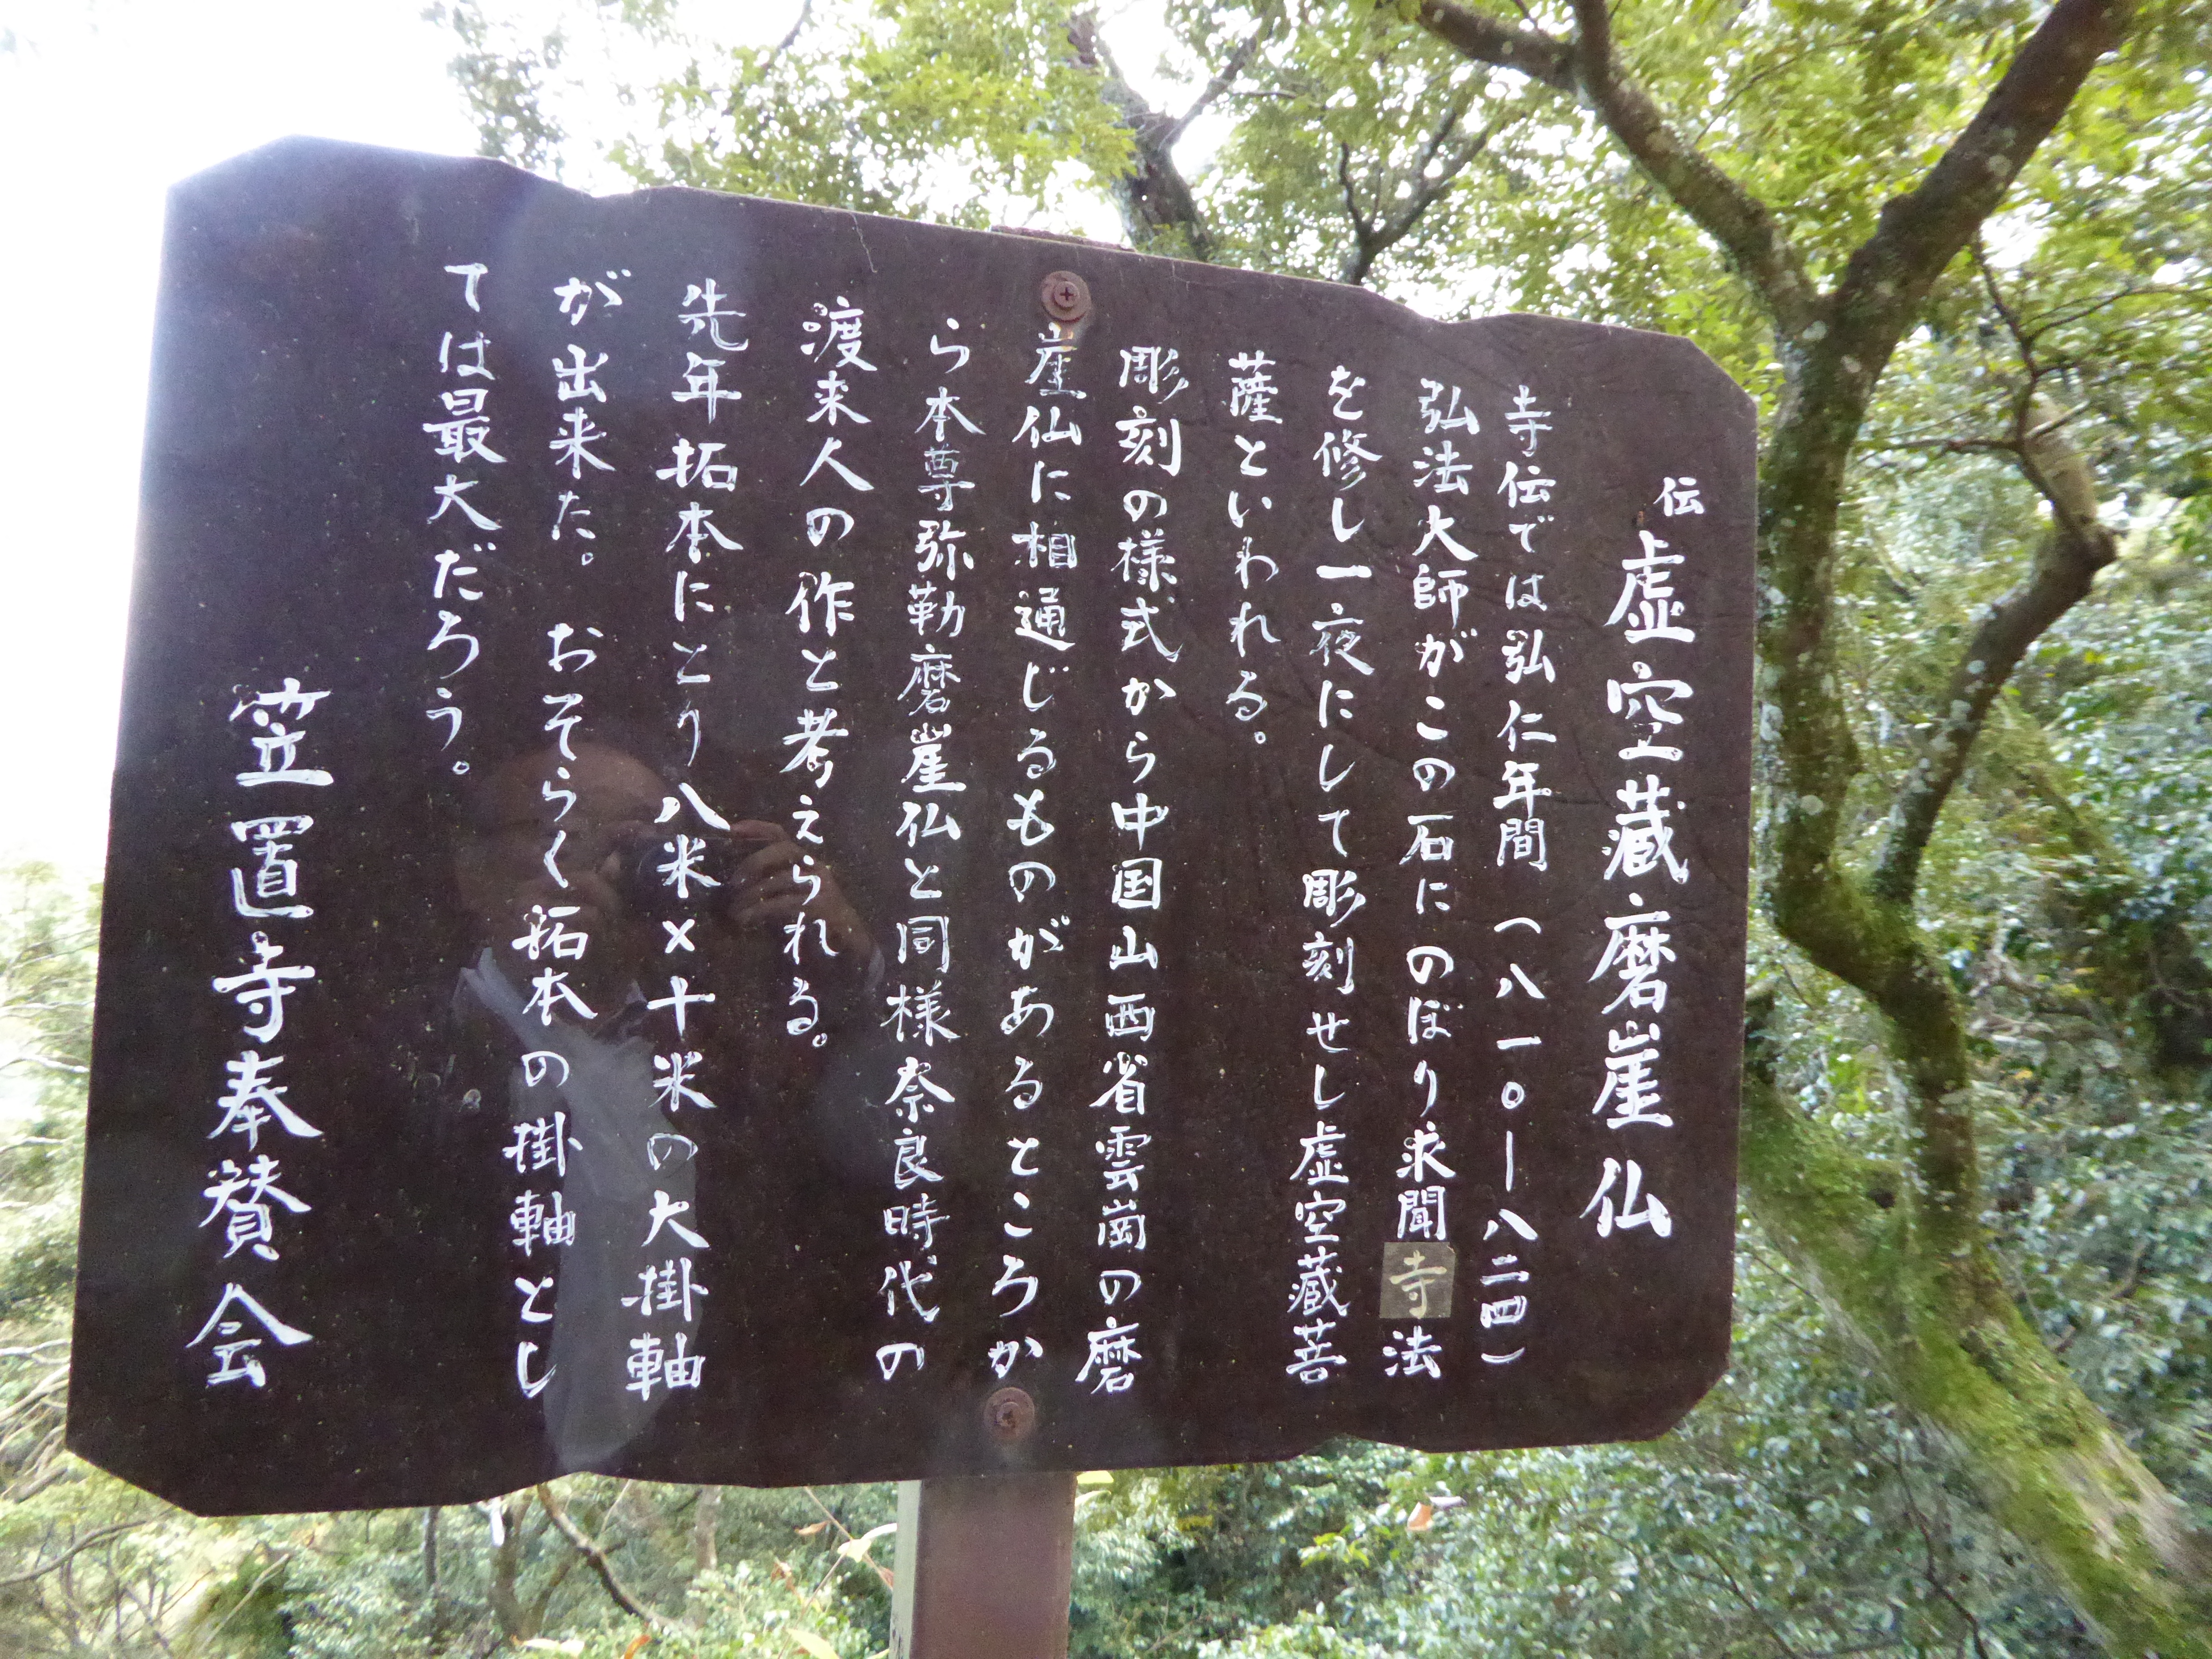 伝 虚空蔵磨崖仏
寺伝では弘仁年間（八一〇ー八二四）
弘法大師がこの石にのぼり求聞寺法
を修し一夜にして彫刻せし虚空蔵菩
薩といわれる。
彫刻の様式から中国山西省雲崗の磨
崖仏に相通じるものがあるところか
ら本尊弥勒磨崖仏と同様奈良時代の
渡来人の作と考えられる。
先年拓本にとり八米×十米の大掛軸
が出来た。おそらく拓本の掛軸とし
ては最大だろう。
笠置寺奉賛会